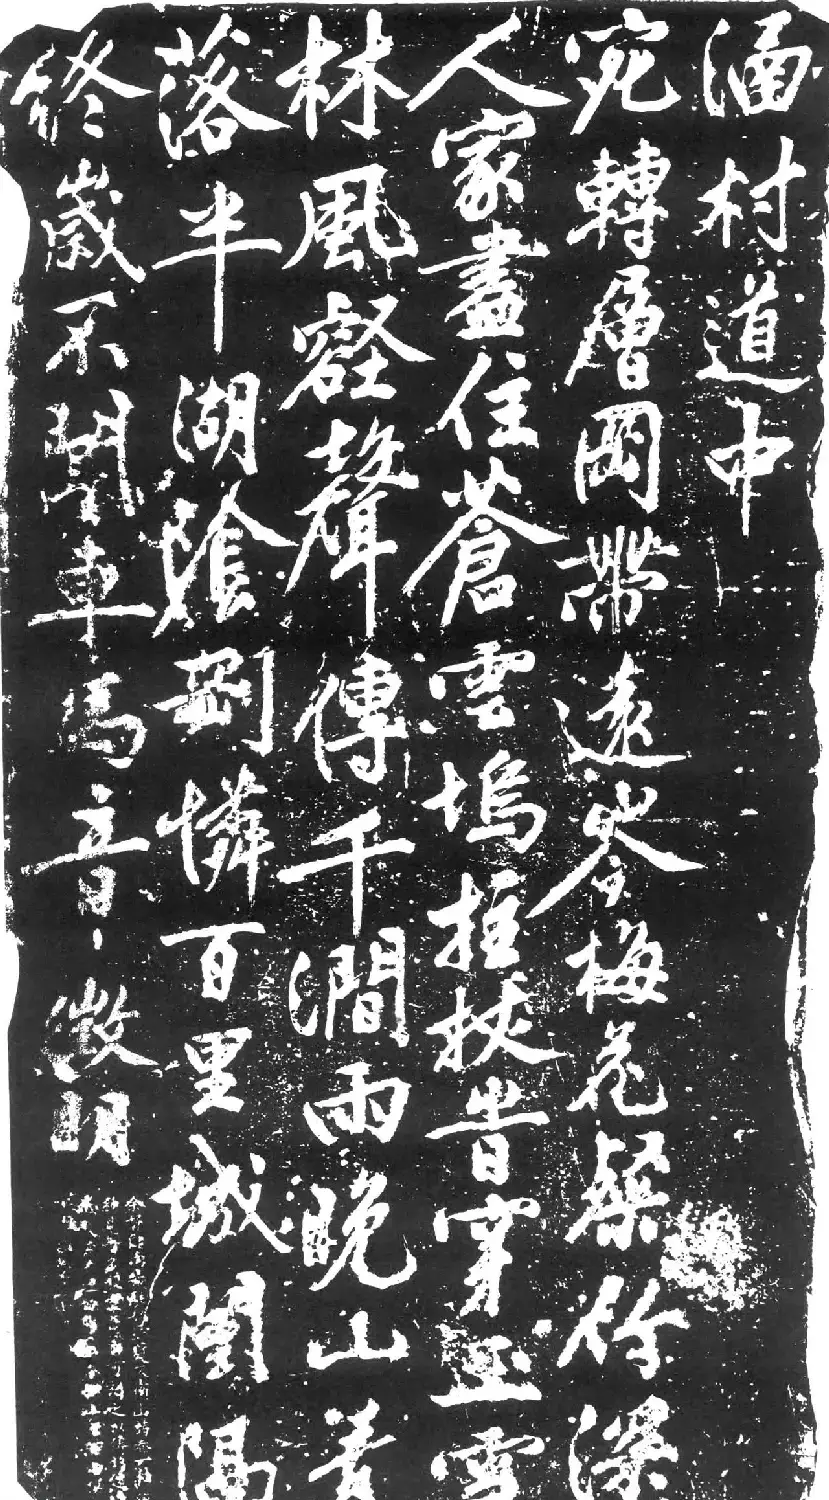 涵村道中
宛轉層岡帶遠岑梅花粲竹深
人家盡住蒼雲塢拄杖旹穿玉雪
林風壑聲傳千澗雨晚山青
落半湖陰剛憐百里城闉隔
終歲不聞車馬音徵明